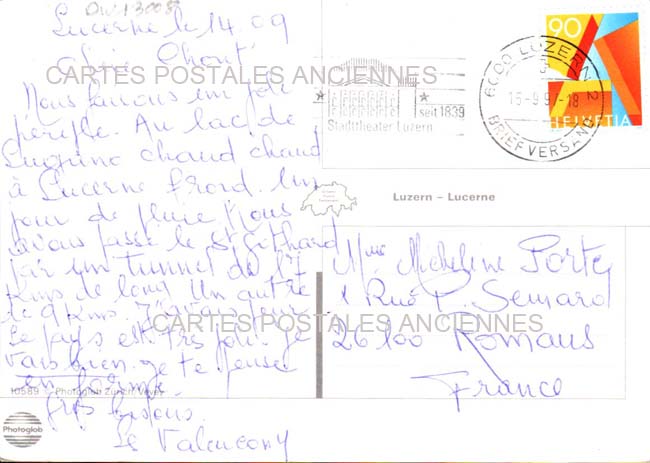 Lucerne le 14.09
CARTES POSTALES ANCIENNES
Nous faisons un joli
périple. Au lac de
Lugano chaud chaud
à Lucerne froid. Un
jour de pluie. Nous
avons passé le St Gothard
par un tunnel de 17
kms de long. Un autre
de 9 kms.
Le pays est très joli. Je
vais bien. Je te pense
en forme.
Gros bisous.
10589 Photoglob Zürich, Vevey
Photoglob
seit 1839
Stadttheater Luzern
6000 LUZERN 2
15-9.97-18
BRIEFVERSAND
90
HELVETIA
Luzern – Lucerne
Mme Micheline Porte
1 Rue P. Semard
CARTES POSTALES ANCIENNES
26100 Romans
France